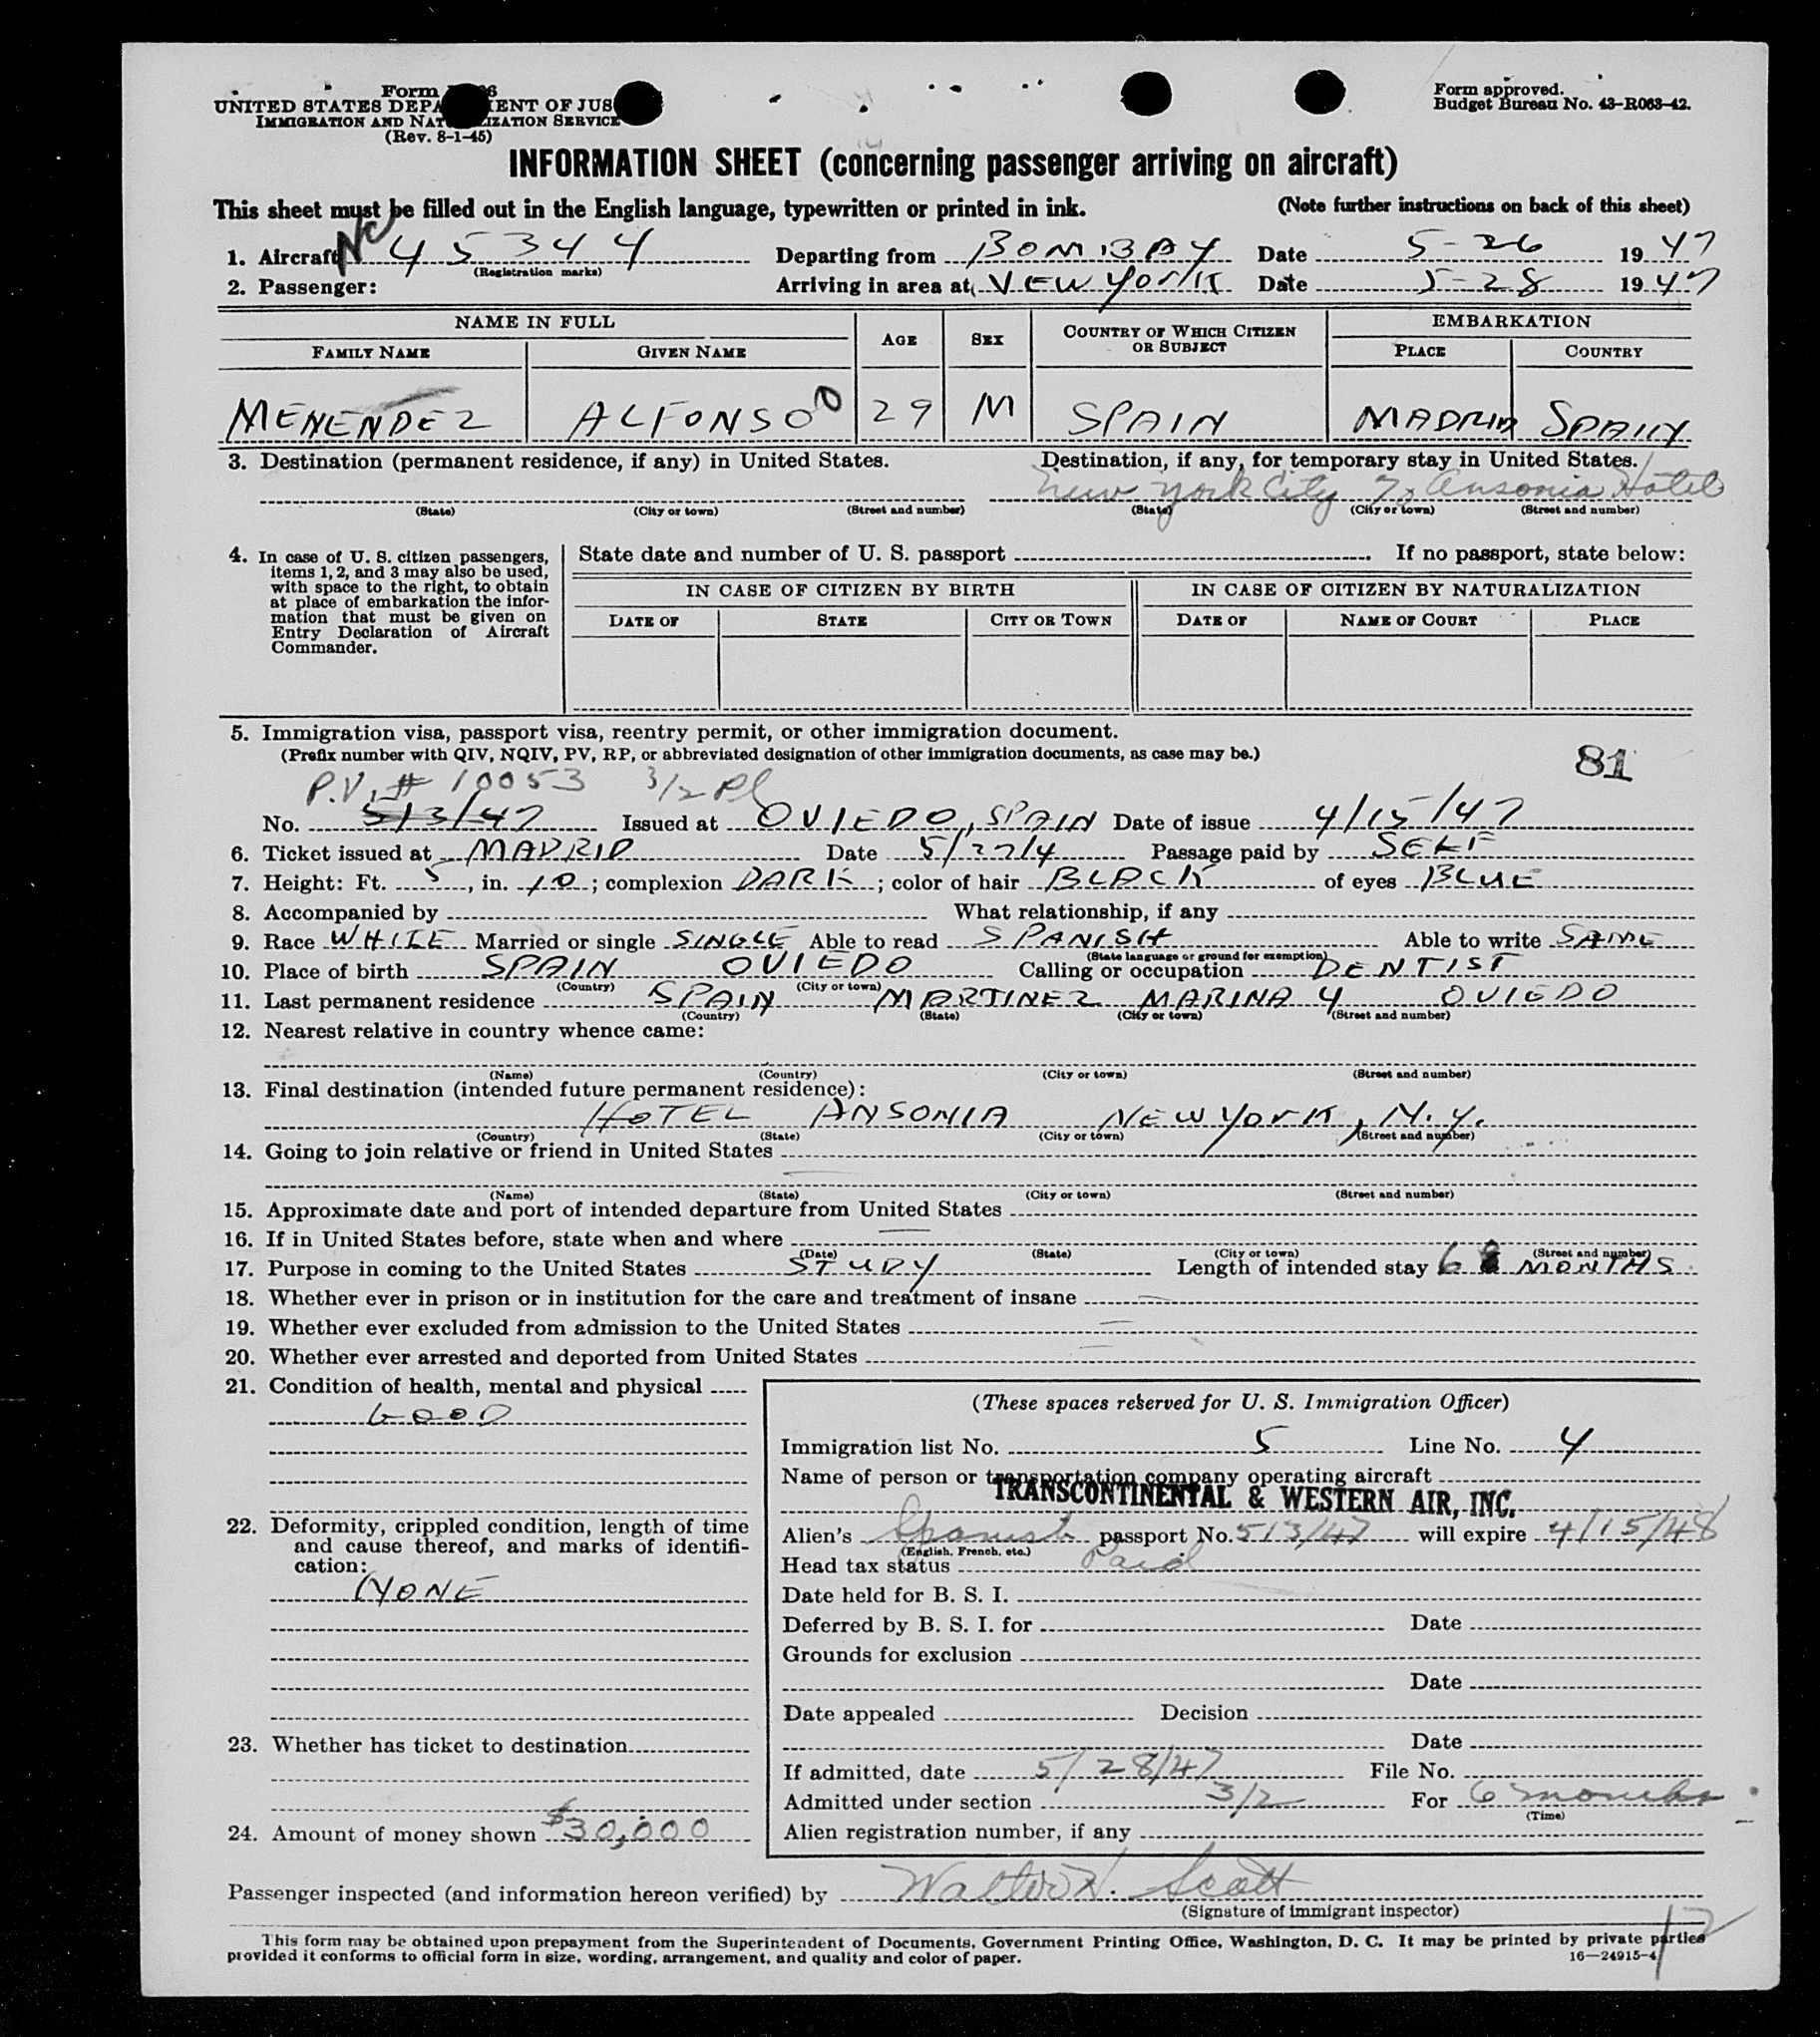 Form
UNITED STATES DEPA ENT OF JUS
IMMIGRATION AND NAT IZATION SERVICE
(Rev. 8-1-45)
Form approved.
Budget Bureau No. 43-R063-42.
INFORMATION SHEET (concerning passenger arriving on aircraft)
This sheet must be filled out in the English language, typewritten or printed in ink. (Note further instructions on back of this sheet)
1. Aircraft NC 45344 Departing from BOMBAY Date 5-26 1947
(Registration marks)
2. Passenger: Arriving in area at NEW YORK Date 5-28 1947
NAME IN FULL AGE SEX COUNTRY OF WHICH CITIZEN OR SUBJECT EMBARKATION
FAMILY NAME GIVEN NAME PLACE COUNTRY
MENENDEZ ALFONSO 29 M SPAIN MADRID SPAIN
3. Destination (permanent residence, if any) in United States. Destination, if any, for temporary stay in United States.
New York City Ansonia Hotel
(State) (City or town) (Street and number) (State) (City or town) (Street and number)
4. In case of U. S. citizen passengers, items 1, 2, and 3 may also be used, with space to the right, to obtain at place of embarkation the information that must be given on Entry Declaration of Aircraft Commander.
State date and number of U. S. passport . If no passport, state below:
IN CASE OF CITIZEN BY BIRTH IN CASE OF CITIZEN BY NATURALIZATION
DATE OF STATE CITY OR TOWN DATE OF NAME OF COURT PLACE
5. Immigration visa, passport visa, reentry permit, or other immigration document.
(Prefix number with QIV, NQIV, PV, RP, or abbreviated designation of other immigration documents, as case may be.)
81
P.V. # 10053 3/2 Pl
No. 513/47 Issued at OVIEDO, SPAIN Date of issue 4/15/47
6. Ticket issued at MADRID Date 5/27/4 Passage paid by SELF
7. Height: Ft. 5, in. 10; complexion DARK; color of hair BLACK of eyes BLUE
8. Accompanied by What relationship, if any
9. Race WHITE Married or single SINGLE Able to read SPANISH Able to write SAME
(State language or ground for exemption)
10. Place of birth SPAIN OVIEDO Calling or occupation DENTIST
(Country) (City or town)
11. Last permanent residence SPAIN MARTINEZ MARINA 4 OVIEDO
(Country) (State) (City or town) (Street and number)
12. Nearest relative in country whence came:
(Name) (Country) (City or town) (Street and number)
13. Final destination (intended future permanent residence):
HOTEL ANSONIA NEW YORK, N.Y.
(Country) (State) (City or town) (Street and number)
14. Going to join relative or friend in United States
(Name) (State) (City or town) (Street and number)
15. Approximate date and port of intended departure from United States
16. If in United States before, state when and where
(Date) (State) (City or town) (Street and number)
17. Purpose in coming to the United States STUDY Length of intended stay 6 MONTHS
18. Whether ever in prison or in institution for the care and treatment of insane
19. Whether ever excluded from admission to the United States
20. Whether ever arrested and deported from United States
21. Condition of health, mental and physical
GOOD
22. Deformity, crippled condition, length of time and cause thereof, and marks of identification:
NONE
23. Whether has ticket to destination
24. Amount of money shown $30,000
(These spaces reserved for U. S. Immigration Officer)
Immigration list No. 5 Line No. 4
Name of person or transportation company operating aircraft
TRANSCONTINENTAL & WESTERN AIR, INC.
Alien's Spanish passport No. 513/47 will expire 4/15/48
(English, French, etc.)
Head tax status Paid
Date held for B. S. I.
Deferred by B. S. I. for Date
Grounds for exclusion
Date
Date appealed Decision
Date
If admitted, date 5/28/47 File No.
Admitted under section 3/2 For 6 months
(Time)
Alien registration number, if any
Passenger inspected (and information hereon verified) by Walter H. Scott
(Signature of immigrant inspector)
This form may be obtained upon prepayment from the Superintendent of Documents, Government Printing Office, Washington, D. C. It may be printed by private parties
provided it conforms to official form in size, wording, arrangement, and quality and color of paper. 16—24915-4